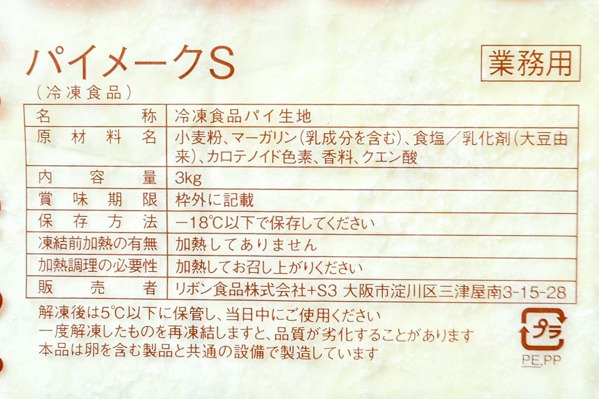 パイメークS
(冷凍食品)
業務用
名称 冷凍食品パイ生地
原材料名 小麦粉、マーガリン(乳成分を含む)、食塩/乳化剤(大豆由
来)、カロテノイド色素、香料、クエン酸
内容量 3kg
賞味期限 枠外に記載
保存方法 −18℃以下で保存してください
凍結前加熱の有無 加熱してありません
加熱調理の必要性 加熱してお召し上がりください
販売者 リボン食品株式会社+S3 大阪市淀川区三津屋南3-15-28
解凍後は5℃以下に保管し、当日中にご使用ください
一度解凍したものを再凍結しますと、品質が劣化することがあります
本品は卵を含む製品と共通の設備で製造しています
プラ
PE,PP